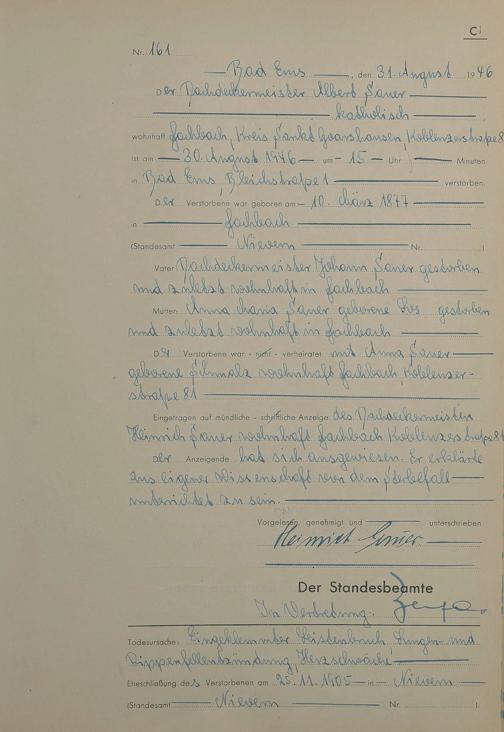 C
Nr. 161
Bad Ems, den 31. August 1946
Der Dachdeckermeister Albert Sauer
katholisch
wohnhaft Fachbach, Kreis Sankt Goarshausen, Koblenzerstraße 8
ist am 30. August 1946 um 15 Uhr Minuten
in Bad Ems, Bleichstraße 1 verstorben.
Der Verstorbene war geboren am 10. März 1877
in Fachbach
(Standesamt Nievern Nr. )
Vater: Dachdeckermeister Johann Sauer gestorben
und zuletzt wohnhaft in Fachbach
Mutter: Anna Maria Sauer geborene gestorben
und zuletzt wohnhaft in Fachbach
Der Verstorbene war - nicht - verheiratet mit Anna Sauer
geborene Schmalz wohnhaft Fachbach, Koblenzer-
straße 81
Eingetragen auf mündliche - schriftliche Anzeige des Dachdeckermeisters
Heinrich Sauer wohnhaft Fachbach Koblenzerstraße 81
Der Anzeigende hat sich ausgewiesen. Er erklärte
aus eigener Wissenschaft von dem Sterbefall
unterrichtet zu sein.
Vorgelesen, genehmigt und unterschrieben
Heinrich Sauer
Der Standesbeamte
In Vertretung:
Todesursache: Eingeklemmter Leistenbruch Lungen- und
Rippenfellentzündung, Herzschwäche
Eheschließung des Verstorbenen am 25.11.1905 in Nievern
(Standesamt Nievern Nr. ).